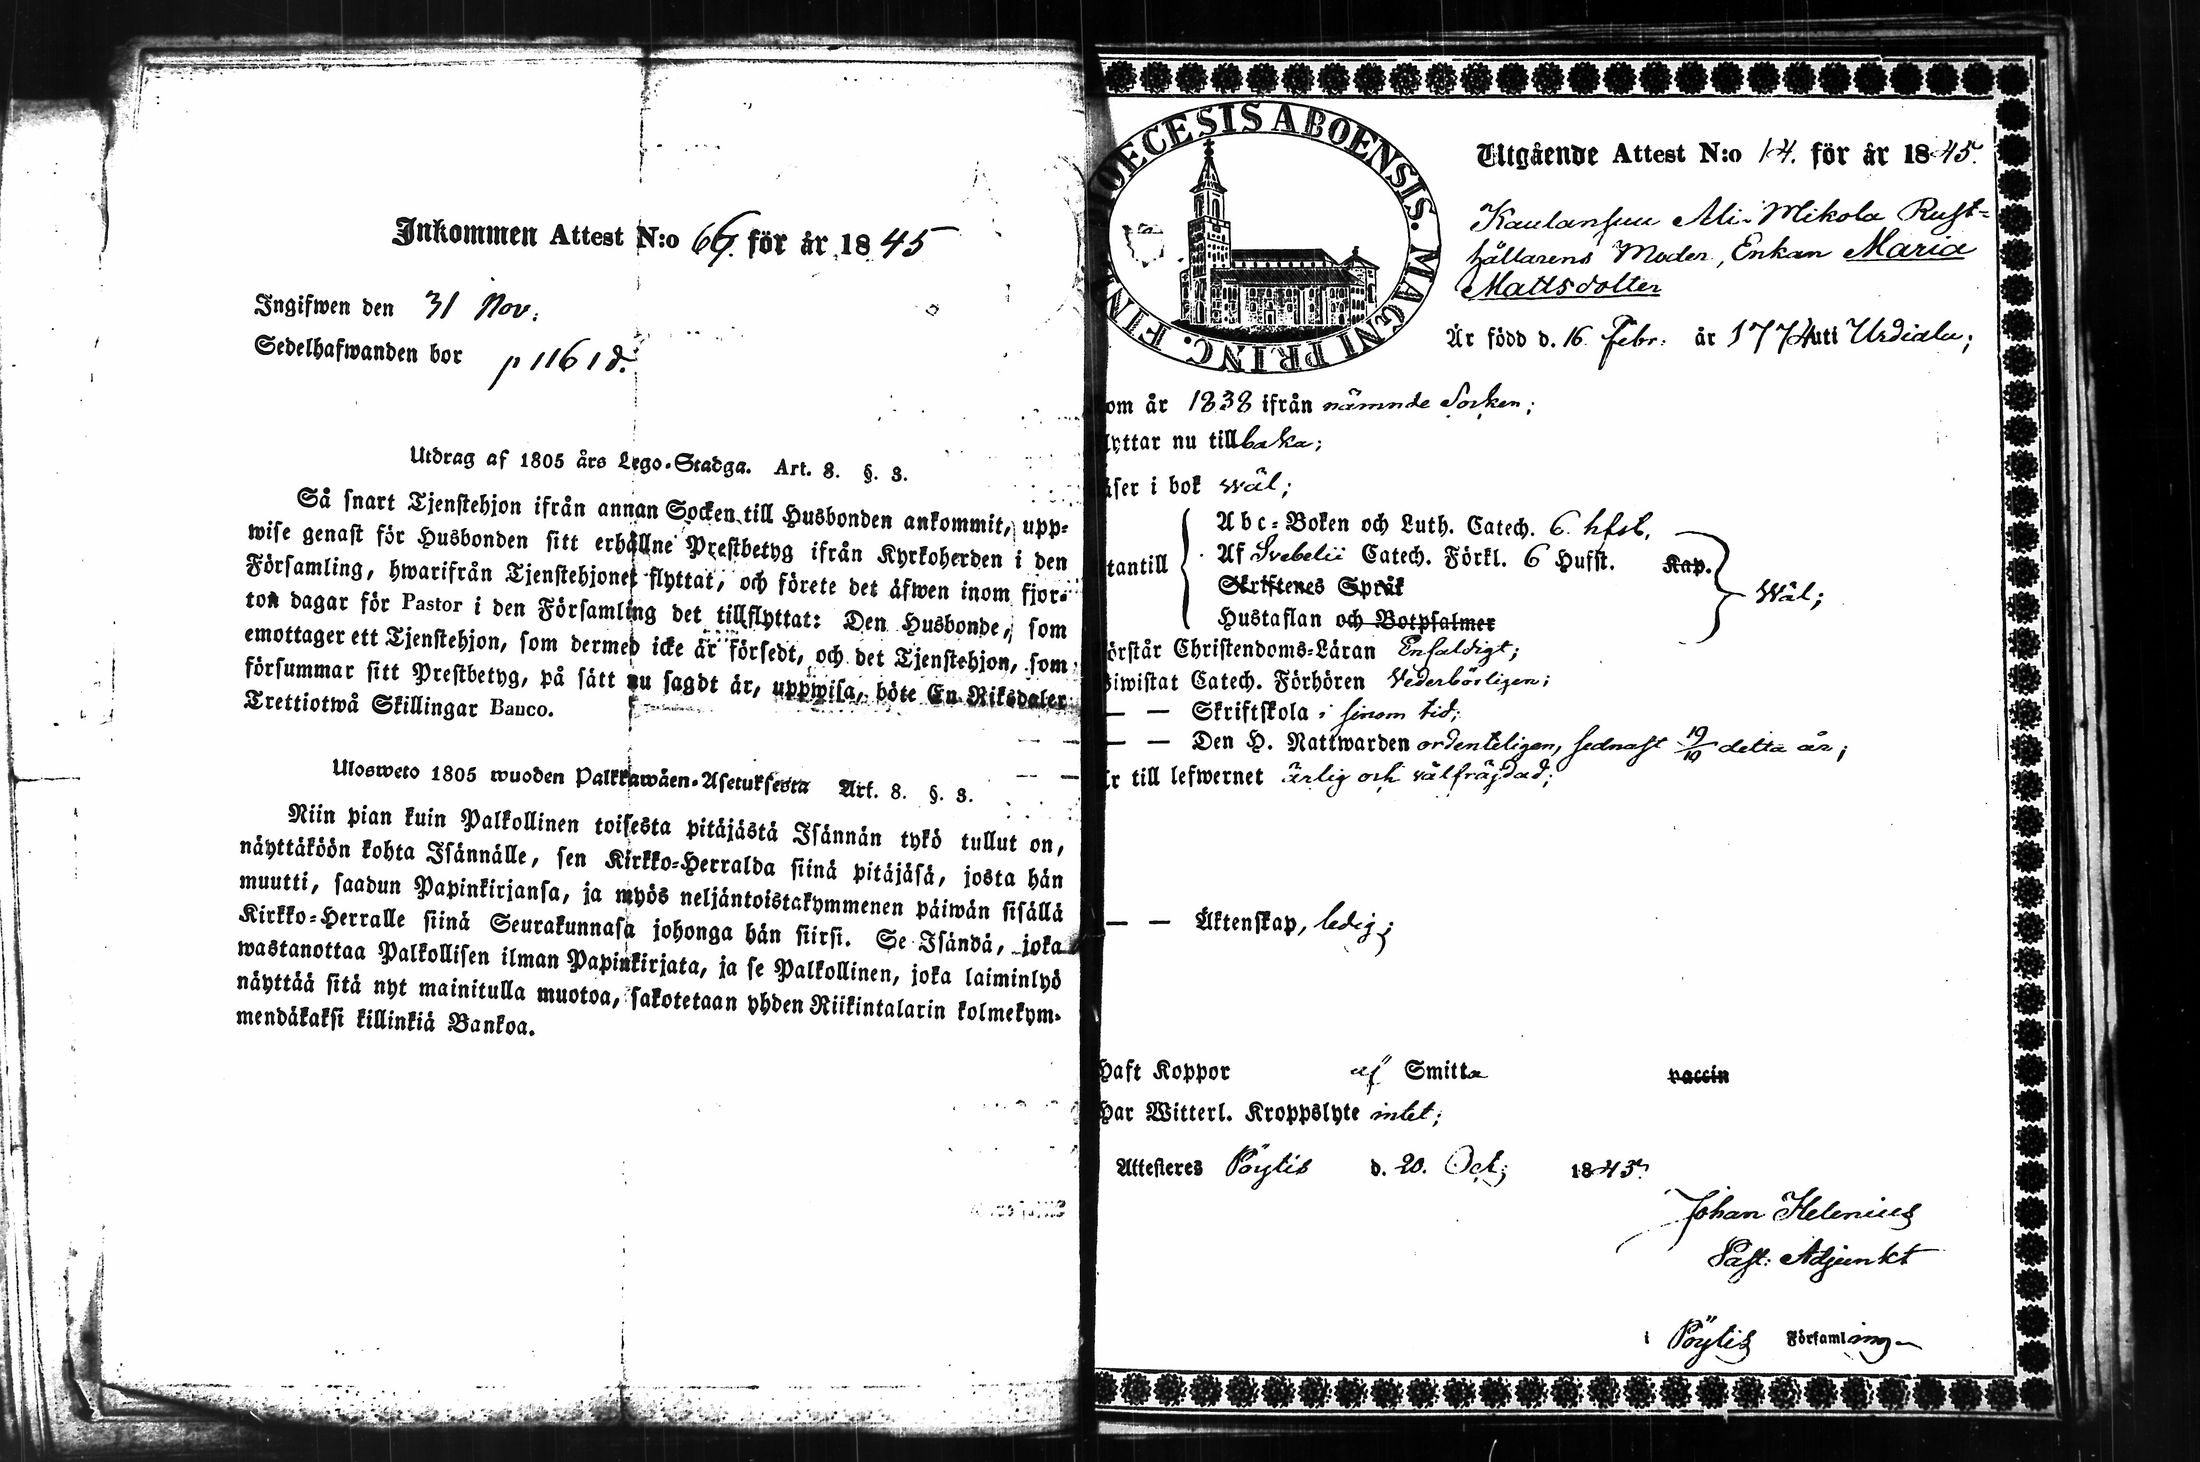 Inkommen Attest N:o 66. för år 1845
Ingifwen den 31 Nov:
Sedelhafwanden bor p 116 1d.
Utdrag af 1805 års Lego-Stadga. Art. 8. §. 3.
Så snart Tjenstehjon ifrån annan Socken till Husbonden ankommit, upp-
wise genast för Husbonden sitt erhållne Prestbetyg ifrån Kyrkoherden i den
Församling, hwarifrån Tjenstehjonet flyttat, och förete det äfwen inom fjor-
ton dagar för Pastor i den Församling det tillflyttat: Den Husbonde, som
emottager ett Tjenstehjon, som dermed icke är försedt, och det Tjenstehjon, som
försummar sitt Prestbetyg, på sätt nu sagdt är, uppwisa, böte En Riksdaler
Trettiotwå Skillingar Banco.
Ulosweto 1805 wuoden Palkkawäen-Asetuksesta Art. 8. §. 3.
Niin pian kuin Palkollinen toisesta pitäjästä Isännän tykö tullut on,
näyttäköön kohta Isännälle, sen Kirkko-Herralda siinä pitäjäsä, josta hän
muutti, saadun Papinkirjansa, ja myös neljäntoistakymmenen päiwän sisällä
Kirkko-Herralle siinä Seurakunnasa johonga hän siirsi. Se Isändä, joka
wastanottaa Palkollisen ilman Papinkirjata, ja se Palkollinen, joka laiminlyö
näyttää sitä nyt mainitulla muotoa, sakotetaan yhden Riikintalarin kolmekym-
mendäkaksi killinkiä Bankoa.
OECESIS ABOENSIS. MAGNI PRINC. FIN
Utgående Attest N:o 14. för år 1845.
Kaulansuu Ali-Mikola Rust-
hållarens Moder, Enkan Maria
Mattsdotter
Är född d. 16 Febr: år 1774 uti Urdiala;
om år 1838 ifrån nämnde Socken;
lyttar nu tillbaka;
äser i bok wäl;
tantill
Abc-Boken och Luth. Catech. 6. hfst.
Af Svebelii Catech. Förkl. 6 Hufst. Kap.
Skriftenes Språk
Hustaflan och Botpsalmer
Wäl;
örstår Christendoms-Läran Enfaldigt;
iwistat Catech. Förhören Vederbörligen;
— — Skriftskola i sinom tid;
— — Den H. Nattwarden ordenteligen, sednast 19/10 detta år;
r till lefwernet ärlig och välfräjdad;
— — Äktenskap, ledig;
Haft Koppor af Smitta vaccin
Har Witterl. Kroppslyte intet;
Attesteres Pöytis d. 20. Oct; 1845.
Johan Helenius
Past: Adjunkt
i Pöytis Församling